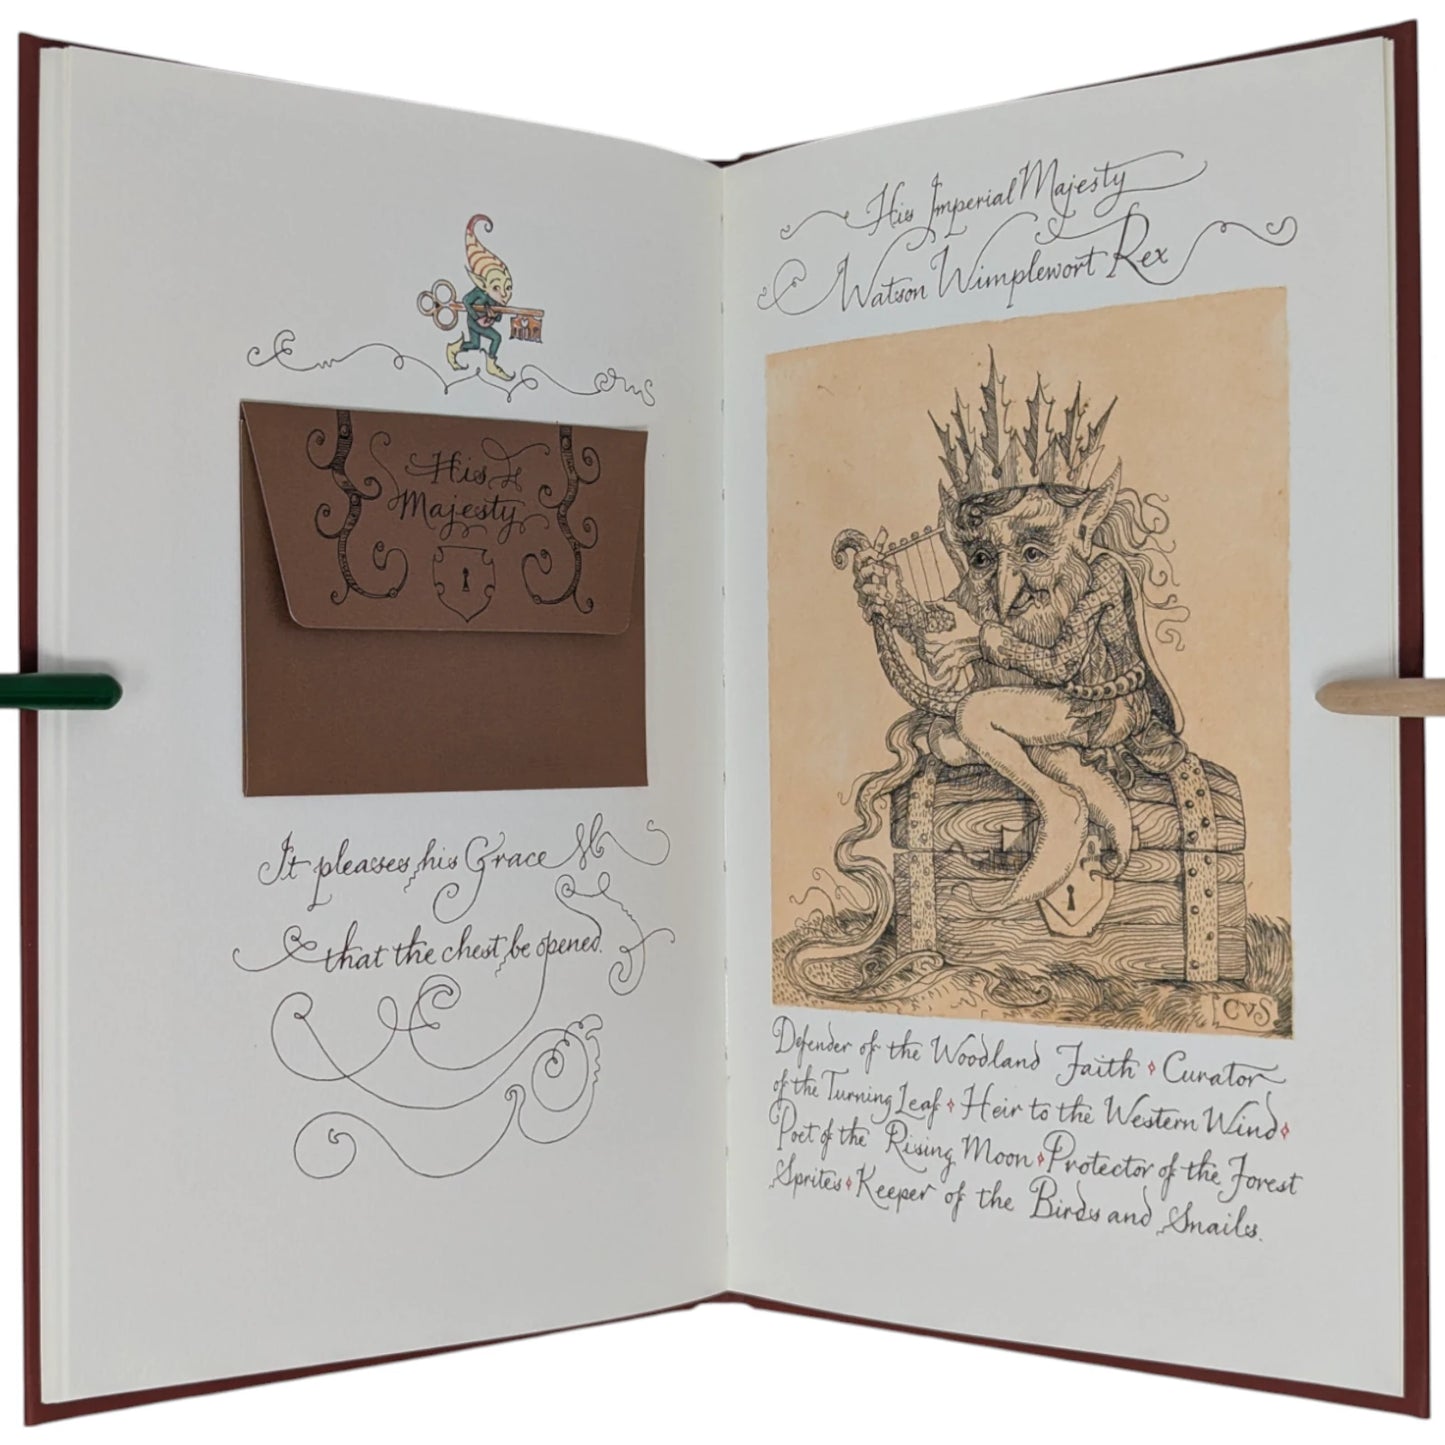 His
Majesty
It pleases his Grace
that the chest be opened.
His Imperial Majesty
Watson Wimplewort Rex
CVS
Defender of the Woodland Faith ⬧ Curator
of the Turning Leaf ⬧ Heir to the Western Wind ⬧
Poet of the Rising Moon ⬧ Protector of the Forest
Sprites ⬧ Keeper of the Birds and Snails.